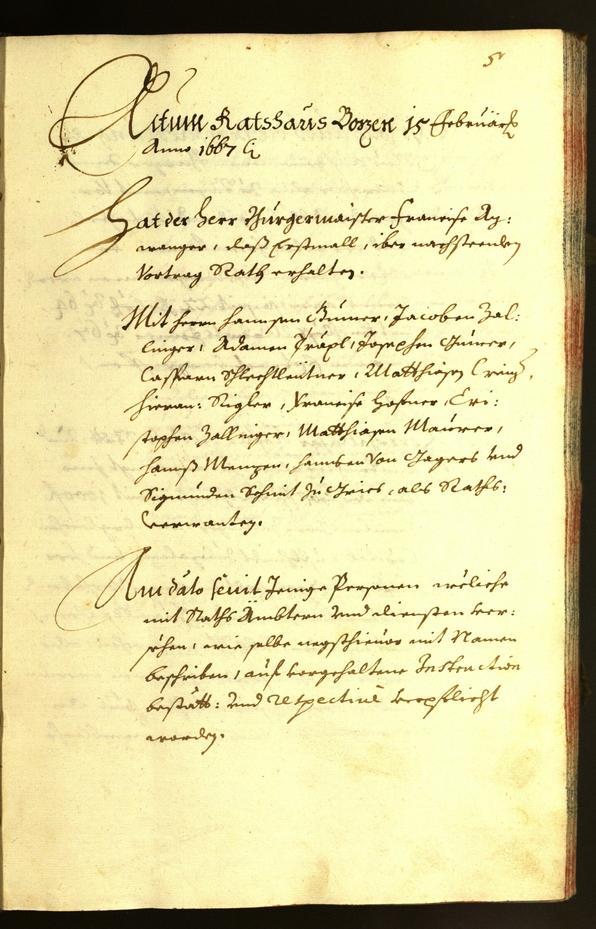 5
Actum Ratshaus Bozen 15 Februarÿ
Anno 1667
Hat der Herr Burgermaister Francisc Ay:
wanger, das Erstmall, iber nachsteenden
Vortrag Rath erhalten.
Mit herrn Hannsen Gumer, Jacoben Zal:
linger, Adamen Träpl, Josephen Gumer,
Casparn Schlechtleütner, Matthiasen
Hieron: Rigler, Francisc Hafner, Cri:
stophen Zallinger, Matthiasen Maurer,
Hannß Menzen, Hannsen von Jagers und
Sigmunden Schmit zu Gries, als Raths:
verwanten.
An dato seint Jenige Personen welliche
mit Raths Ämbtern und diensten ver:
sehen, wie selbe negsthievor mit Namen
beschriben, auf vorgehaltene Instruction
bestätt: und respective verpflicht
worden.